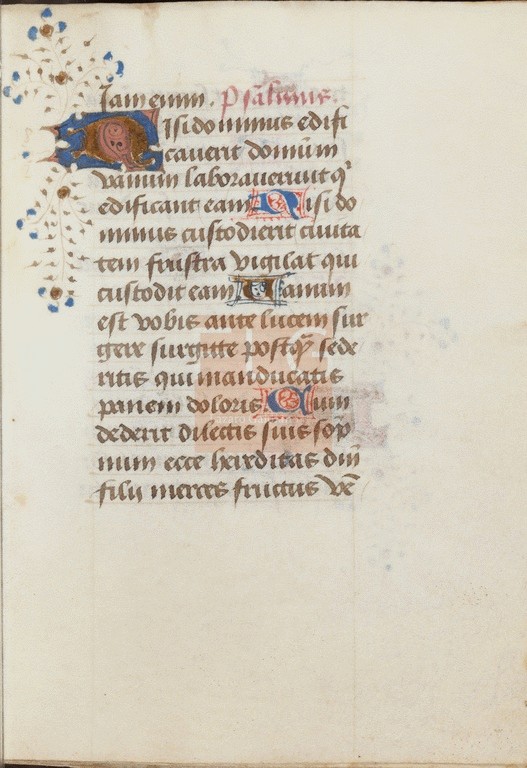 Iam enim . Psalmus .
Nisi dominus edifi
cauerit domum
vanum laborauerunt q
edificant eam Nisi do
minus custodierit ciuita
tem frustra vigilat qui
custodit eam Uanum
est vobis ante lucem sur
gere surgite postqͣ sede
ritis qui manducatis
panem doloris Cum
dederit dilectis suis sop
num ecce hereditas dm̄
filij merces fructus vē